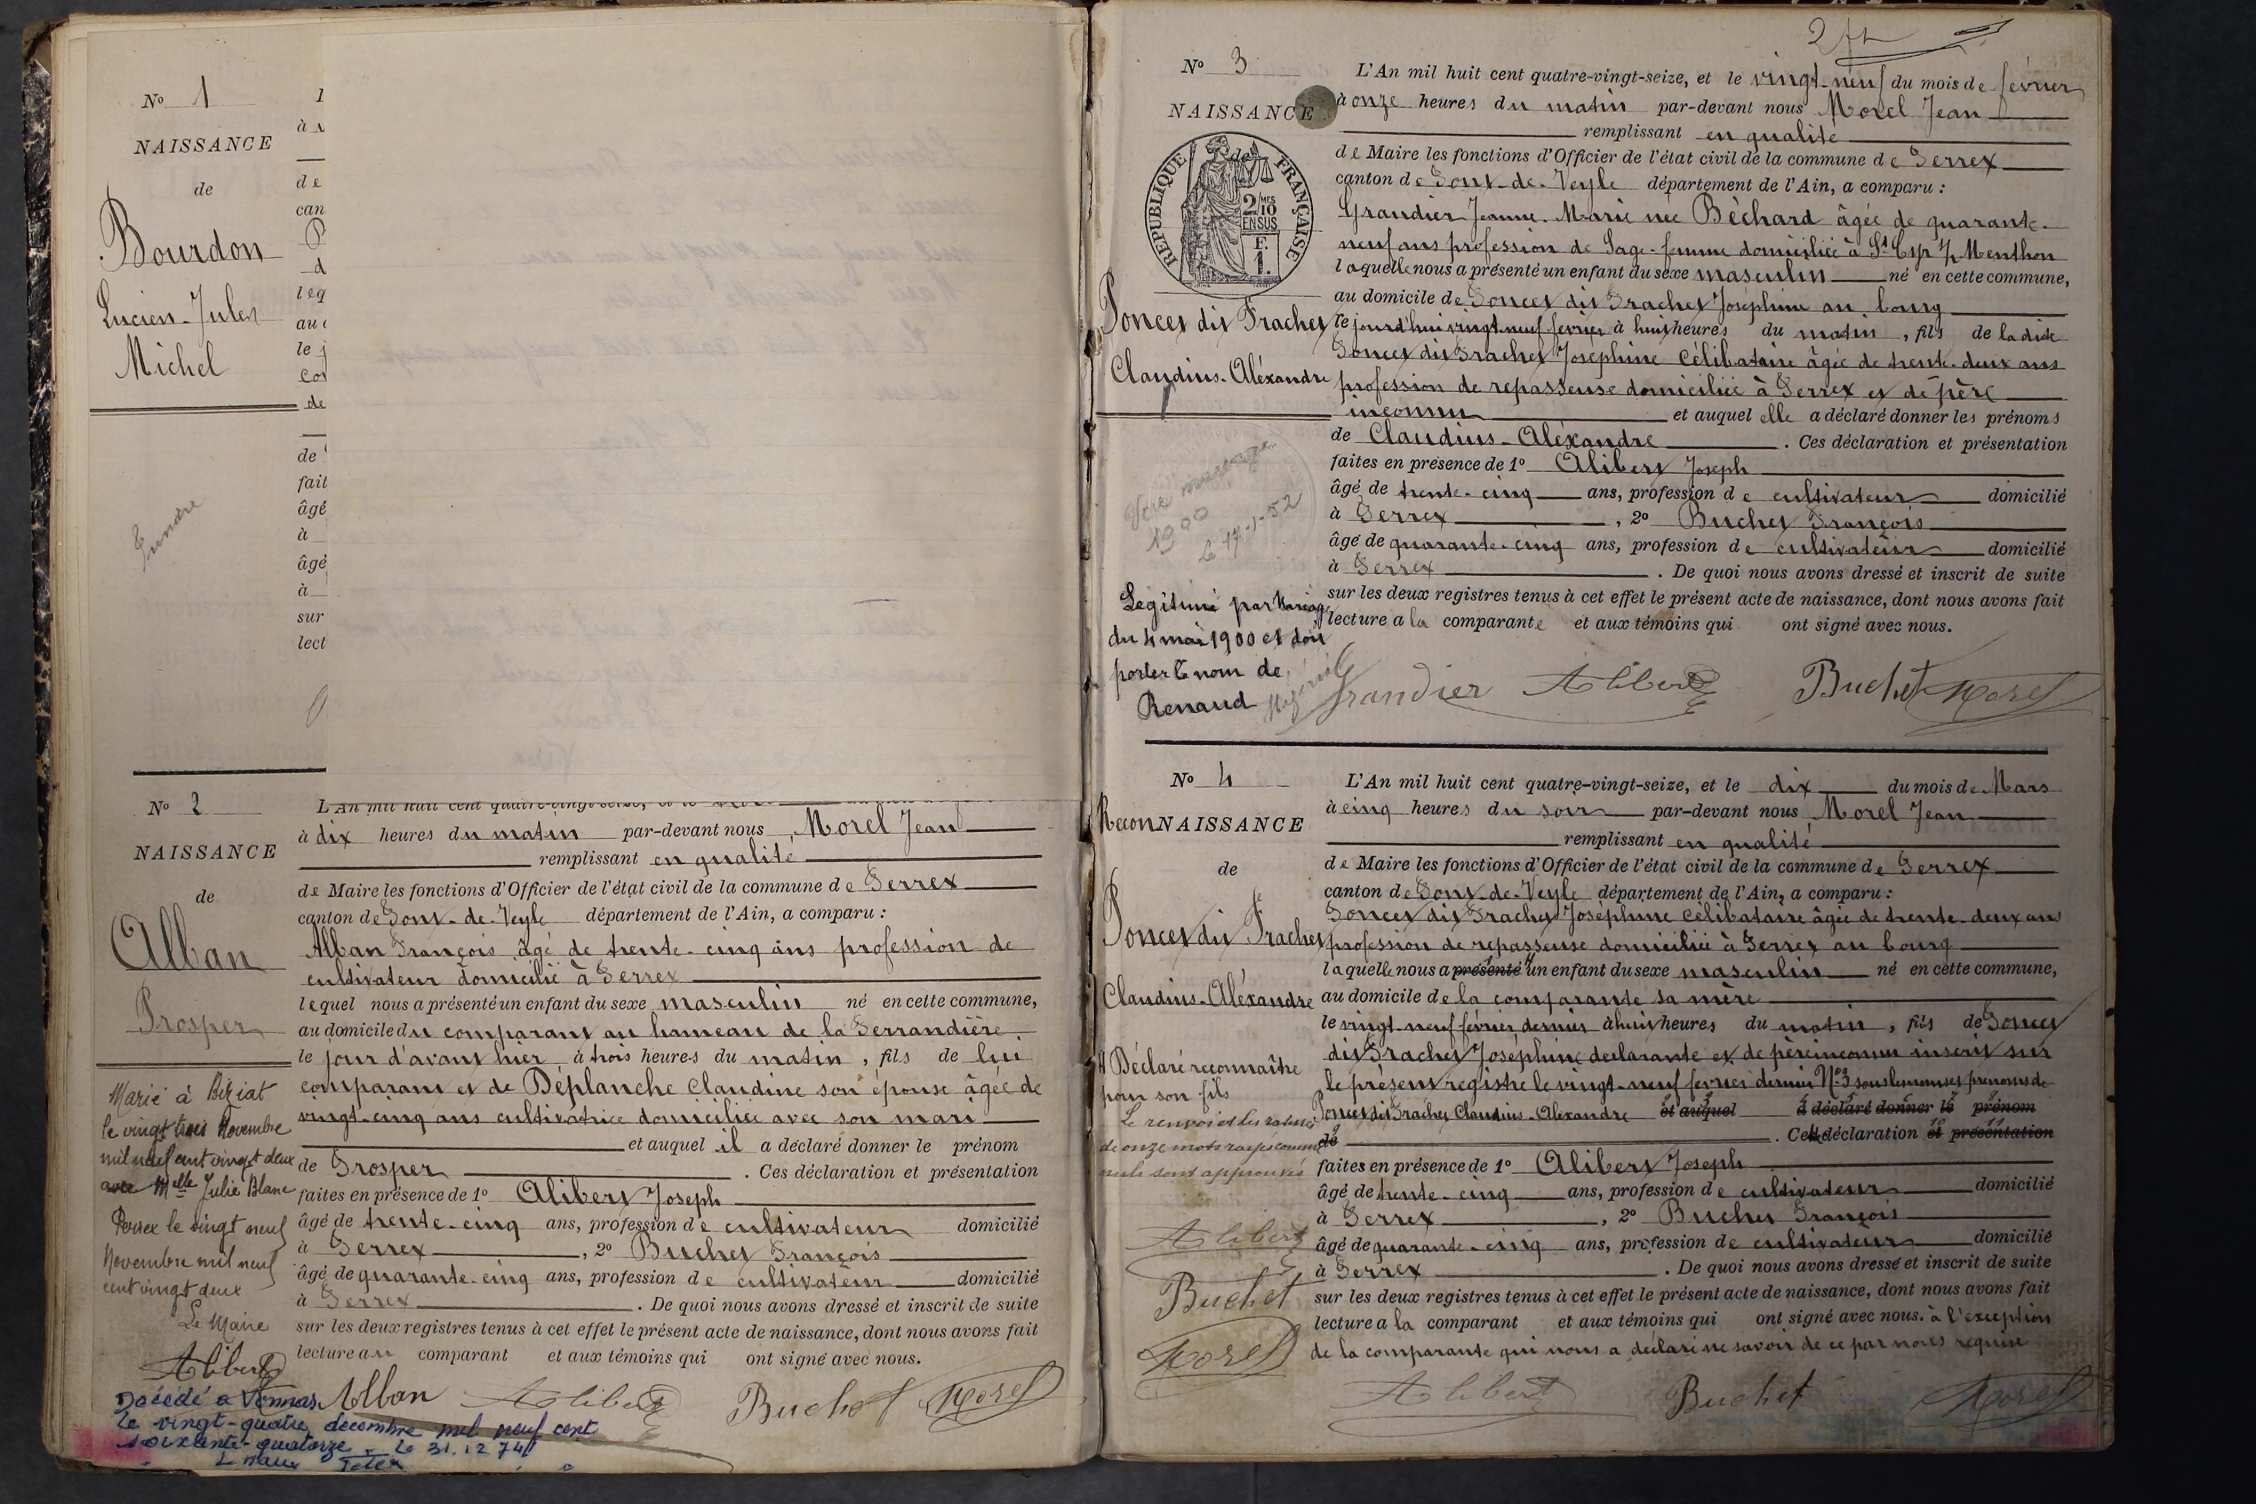 Nº 1
NAISSANCE
de
Bourdon
Lucien-Jules
Michel
à
de
can
leq
au
le j
de
de
fait
âgé
à
âgé
à
sur
lect
Nº 2
NAISSANCE
de
Alban
Prosper
Marié à Biziat
le vingt trois Novembre
mil neuf cent vingt deux
avec Melle Julie Blanc
Perrex le vingt neuf
Novembre mil neuf
cent vingt deux
Le Maire
Alibert
L'An mil huit cent quatre-vingt-seize, et le
à dix heures du matin par-devant nous Morel Jean
remplissant en qualité
de Maire les fonctions d'Officier de l'état civil de la commune de Perrex
canton de Pont-de-Veyle département de l'Ain, a comparu :
Alban François âgé de trente-cinq ans profession de
cultivateur domicilié à Perrex
lequel nous a présenté un enfant du sexe masculin né en cette commune,
au domicile du comparant au hameau de la Perrandière
le jour d'avant hier à trois heures du matin, fils de lui
comparant et de Déplanche Claudine son épouse âgée de
vingt-cinq ans cultivatrice domiciliée avec son mari
et auquel il a déclaré donner le prénom
de Prosper . Ces déclaration et présentation
faites en présence de 1º Alibert Joseph
âgé de trente-cinq ans, profession de cultivateur domicilié
à Perrex , 2º Buchet François
âgé de quarante-cinq ans, profession de cultivateur domicilié
à Perrex . De quoi nous avons dressé et inscrit de suite
sur les deux registres tenus à cet effet le présent acte de naissance, dont nous avons fait
lecture au comparant et aux témoins qui ont signé avec nous.
Alban Alibert Buchet Morel
Décédé à Vonnas
le vingt-quatre décembre mil neuf cent
soixante-quatorze. Le 31.12.74
Nº 3
NAISSANCE
de
REPUBLIQUE FRANÇAISE
2/10 MES
EN SUS
F.
1.
Poncet dit Frachet
Claudius-Aléxandre
1900
le 17-1-52
Légitimé par Mariage
du 4 mai 1900 et doit
porter le nom de
Renaud
L'An mil huit cent quatre-vingt-seize, et le vingt-neuf du mois de février
à onze heures du matin par-devant nous Morel Jean
remplissant en qualité
de Maire les fonctions d'Officier de l'état civil de la commune de Perrex
canton de Pont-de-Veyle département de l'Ain, a comparu :
Grandier Jeanne-Marie née Bèchard âgée de quarante-
neuf ans profession de Sage-femme domiciliée à St Cyr s/ Menthon
laquelle nous a présenté un enfant du sexe masculin né en cette commune,
au domicile de Poncet dit Frachet Joséphine au bourg
le jourd'hui vingt-neuf février à huit heures du matin, fils de ladite
Poncet dit Frachet Joséphine Célibataire âgée de trente-deux ans
profession de repasseuse domiciliée à Perrex et de père
inconnu et auquel elle a déclaré donner les prénoms
de Claudius-Aléxandre . Ces déclaration et présentation
faites en présence de 1º Alibert Joseph
âgé de trente-cinq ans, profession de cultivateur domicilié
à Perrex , 2º Buchet François
âgé de quarante-cinq ans, profession de cultivateur domicilié
à Perrex . De quoi nous avons dressé et inscrit de suite
sur les deux registres tenus à cet effet le présent acte de naissance, dont nous avons fait
lecture a la comparante et aux témoins qui ont signé avec nous.
Grandier Alibert Buchet Morel
Nº 4
ReconNAISSANCE
de
Poncet dit Frachet
Claudius-Aléxandre
# Déclaré reconnaître
pour son fils
Le renvoi et les ratures
de onze mots rayés comme
nuls sont approuvés
Alibert
Buchet
Morel
L'An mil huit cent quatre-vingt-seize, et le dix du mois de Mars
à cinq heures du soir par-devant nous Morel Jean
remplissant en qualité
de Maire les fonctions d'Officier de l'état civil de la commune de Perrex
canton de Pont-de-Veyle département de l'Ain, a comparu :
Poncet dit Frachet Joséphine célibataire âgée de trente-deux ans
profession de repasseuse domiciliée à Perrex au bourg
laquelle nous a présenté # un enfant du sexe masculin né en cette commune,
au domicile de la comparante sa mère
le vingt-neuf février dernier à huit heures du matin, fils de Poncet
dit Frachet Joséphine déclarante et de père inconnu inscrit sur
le présent registre le vingt-neuf fevrier dernier Nº 3 sous les noms et prénoms de
Poncet dit Frachet Claudius-Alexandre et auquel a déclaré donner le prénom
de . Cette déclaration et présentation
faites en présence de 1º Alibert Joseph
âgé de trente-cinq ans, profession de cultivateur domicilié
à Perrex , 2º Buchet François
âgé de quarante-cinq ans, profession de cultivateur domicilié
à Perrex . De quoi nous avons dressé et inscrit de suite
sur les deux registres tenus à cet effet le présent acte de naissance, dont nous avons fait
lecture a la comparant et aux témoins qui ont signé avec nous. à l'exception
de la comparante qui nous a déclaré ne savoir de ce par nous requise
Alibert Buchet Morel